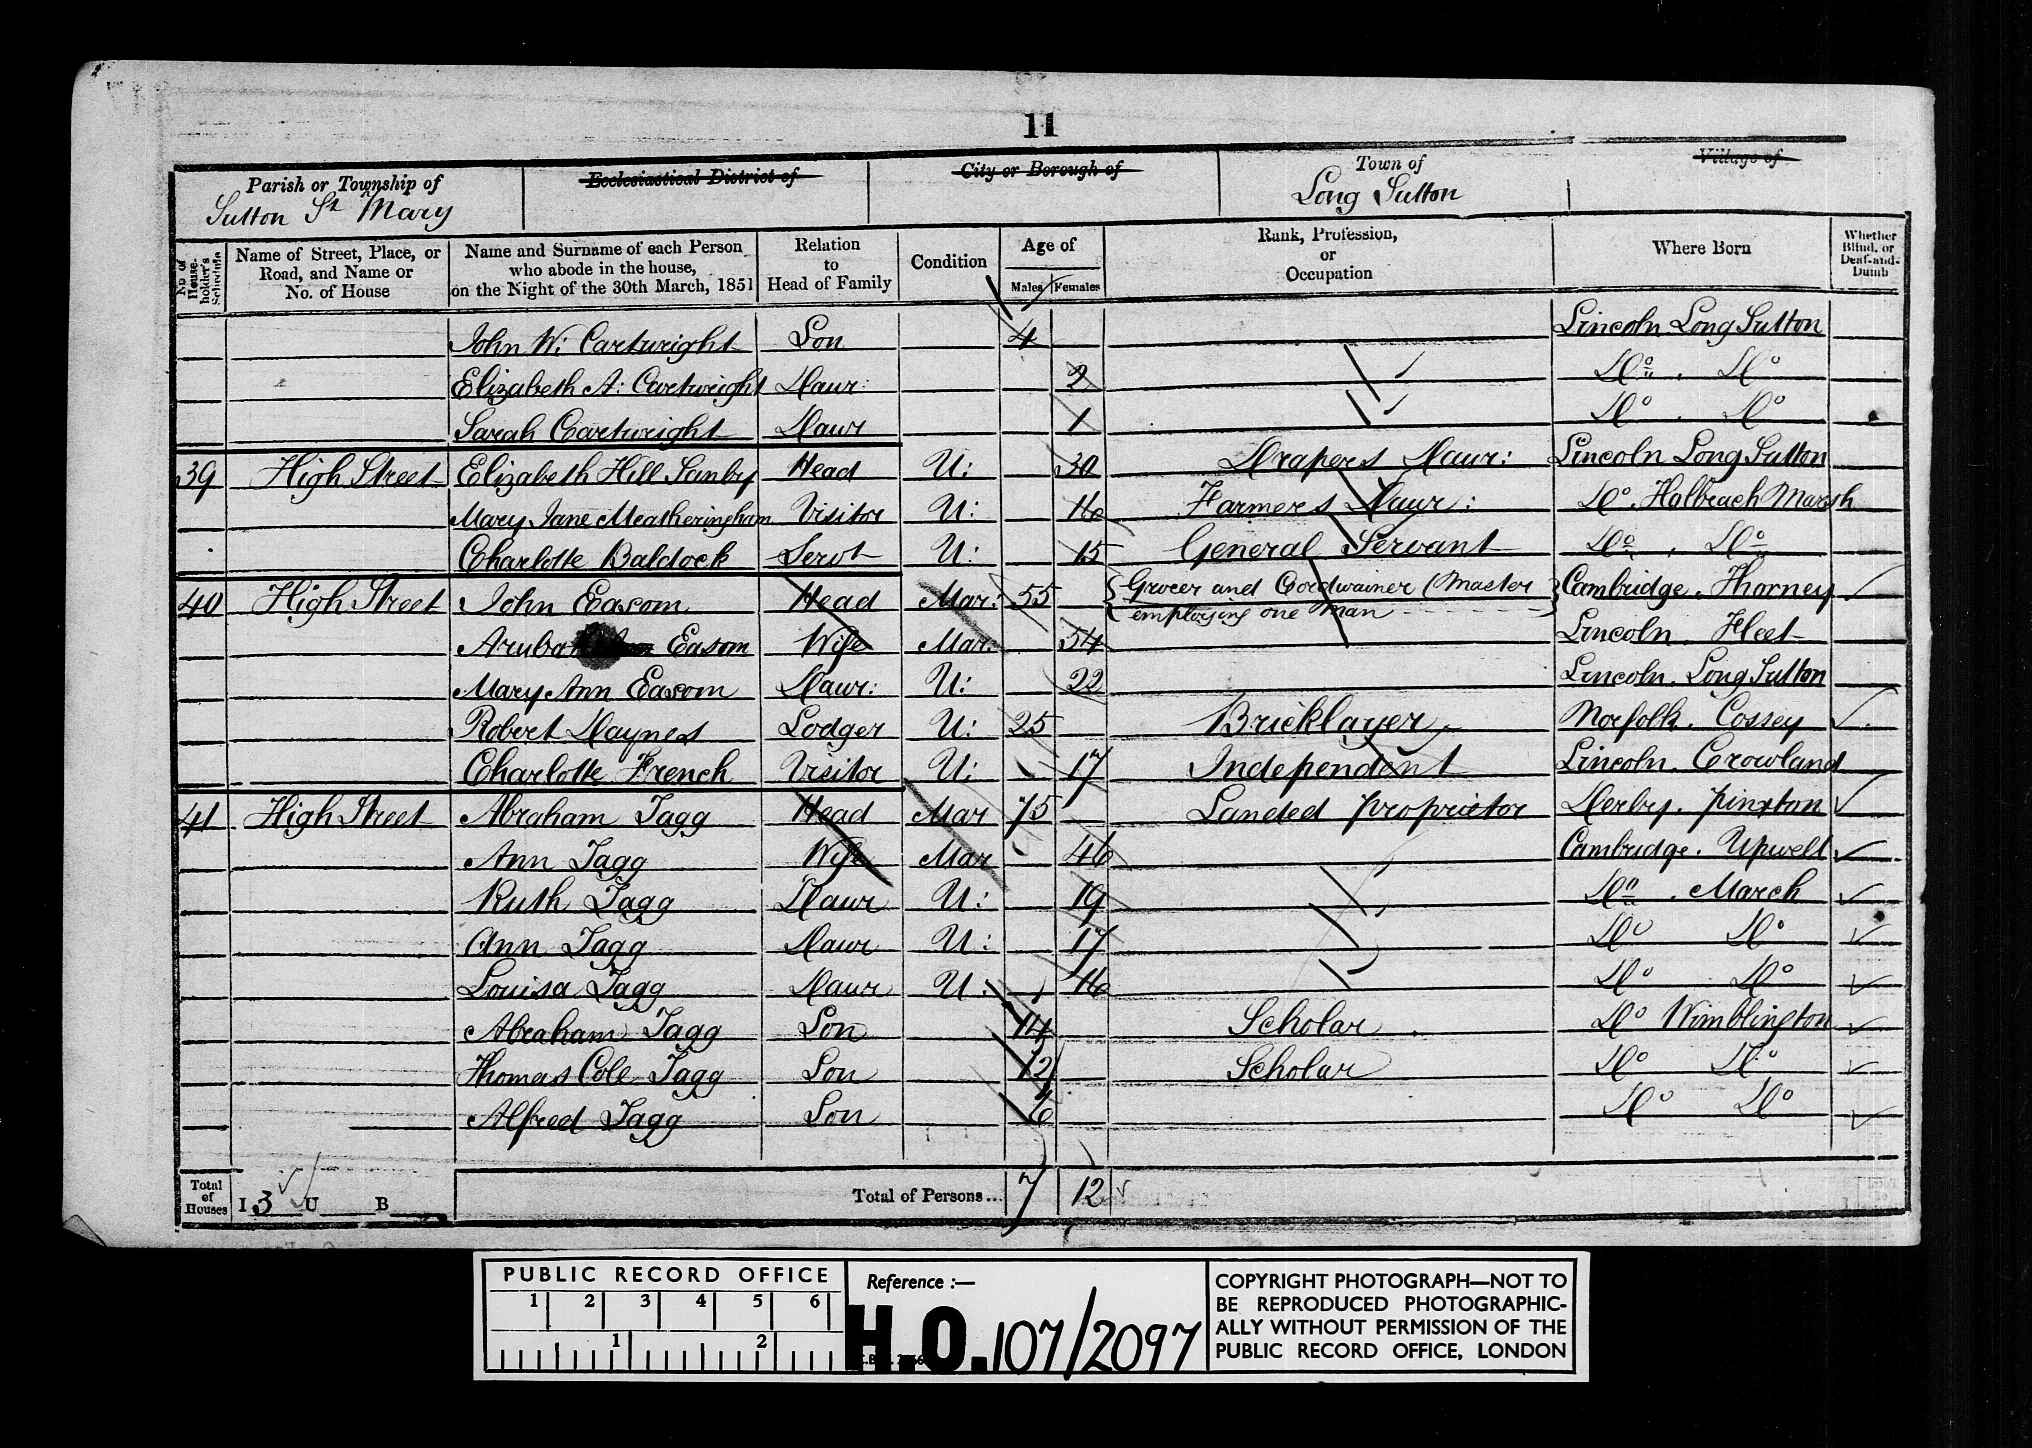 11
Parish or Township of Ecclesiastical District of City or Borough of Town of Village of
Sutton St Mary Long Sutton
No. of House-holder's Schedule Name of Street, Place, or Road, and Name or No. of House Name and Surname of each Person who abode in the house, on the Night of the 30th March, 1851 Relation to Head of Family Condition Age of Males Females Rank, Profession, or Occupation Where Born Whether Blind, or Deaf-and-Dumb
John W: Cartwright Son 4 Lincoln Long Sutton
Elizabeth A: Cartwright Daur: 2 Do . Do
Sarah Cartwright Daur 1 Do . Do
39 High Street Elizabeth Hill Sanby Head U: 30 Drapers Daur: Lincoln Long Sutton
Mary Jane Meatheringham Visitor U: 16 Farmers Daur: Do. Holbeach Marsh
Charlotte Baldock Servt U: 15 General Servant Do . Do
40 High Street John Easom Head Mar: 55 Grocer and Cordwainer (Master Cambridge. Thorney
employing one man
Easom Wife Mar: 54 Lincoln. Fleet
Mary Ann Easom Daur: U: 22 Lincoln. Long Sutton
Robert Daynes Lodger U: 25 Bricklayer Norfolk. Cossey
Charlotte French Visitor U: 17 Independent Lincoln. Crowland
41 High Street Abraham Tagg Head Mar 75 Landed proprietor Derby. Pinxton
Ann Tagg Wife Mar 46 Cambridge. Upwell
Ruth Tagg Daur U: 19 Do . March
Ann Tagg Daur U: 17 Do Do
Louisa Tagg Daur U: 16 Do Do
Abraham Tagg Son 14 Scholar . Do Wimblington
Thomas Cole Tagg Son 12 Scholar Do Do
Alfred Tagg Son 6 Do Do
Total of Houses I 3 U B Total of Persons... 7 12
PUBLIC RECORD OFFICE
1 2 3 4 5 6
1 2
Reference :—
H.O. 107/2097
COPYRIGHT PHOTOGRAPH—NOT TO
BE REPRODUCED PHOTOGRAPHIC-
ALLY WITHOUT PERMISSION OF THE
PUBLIC RECORD OFFICE, LONDON